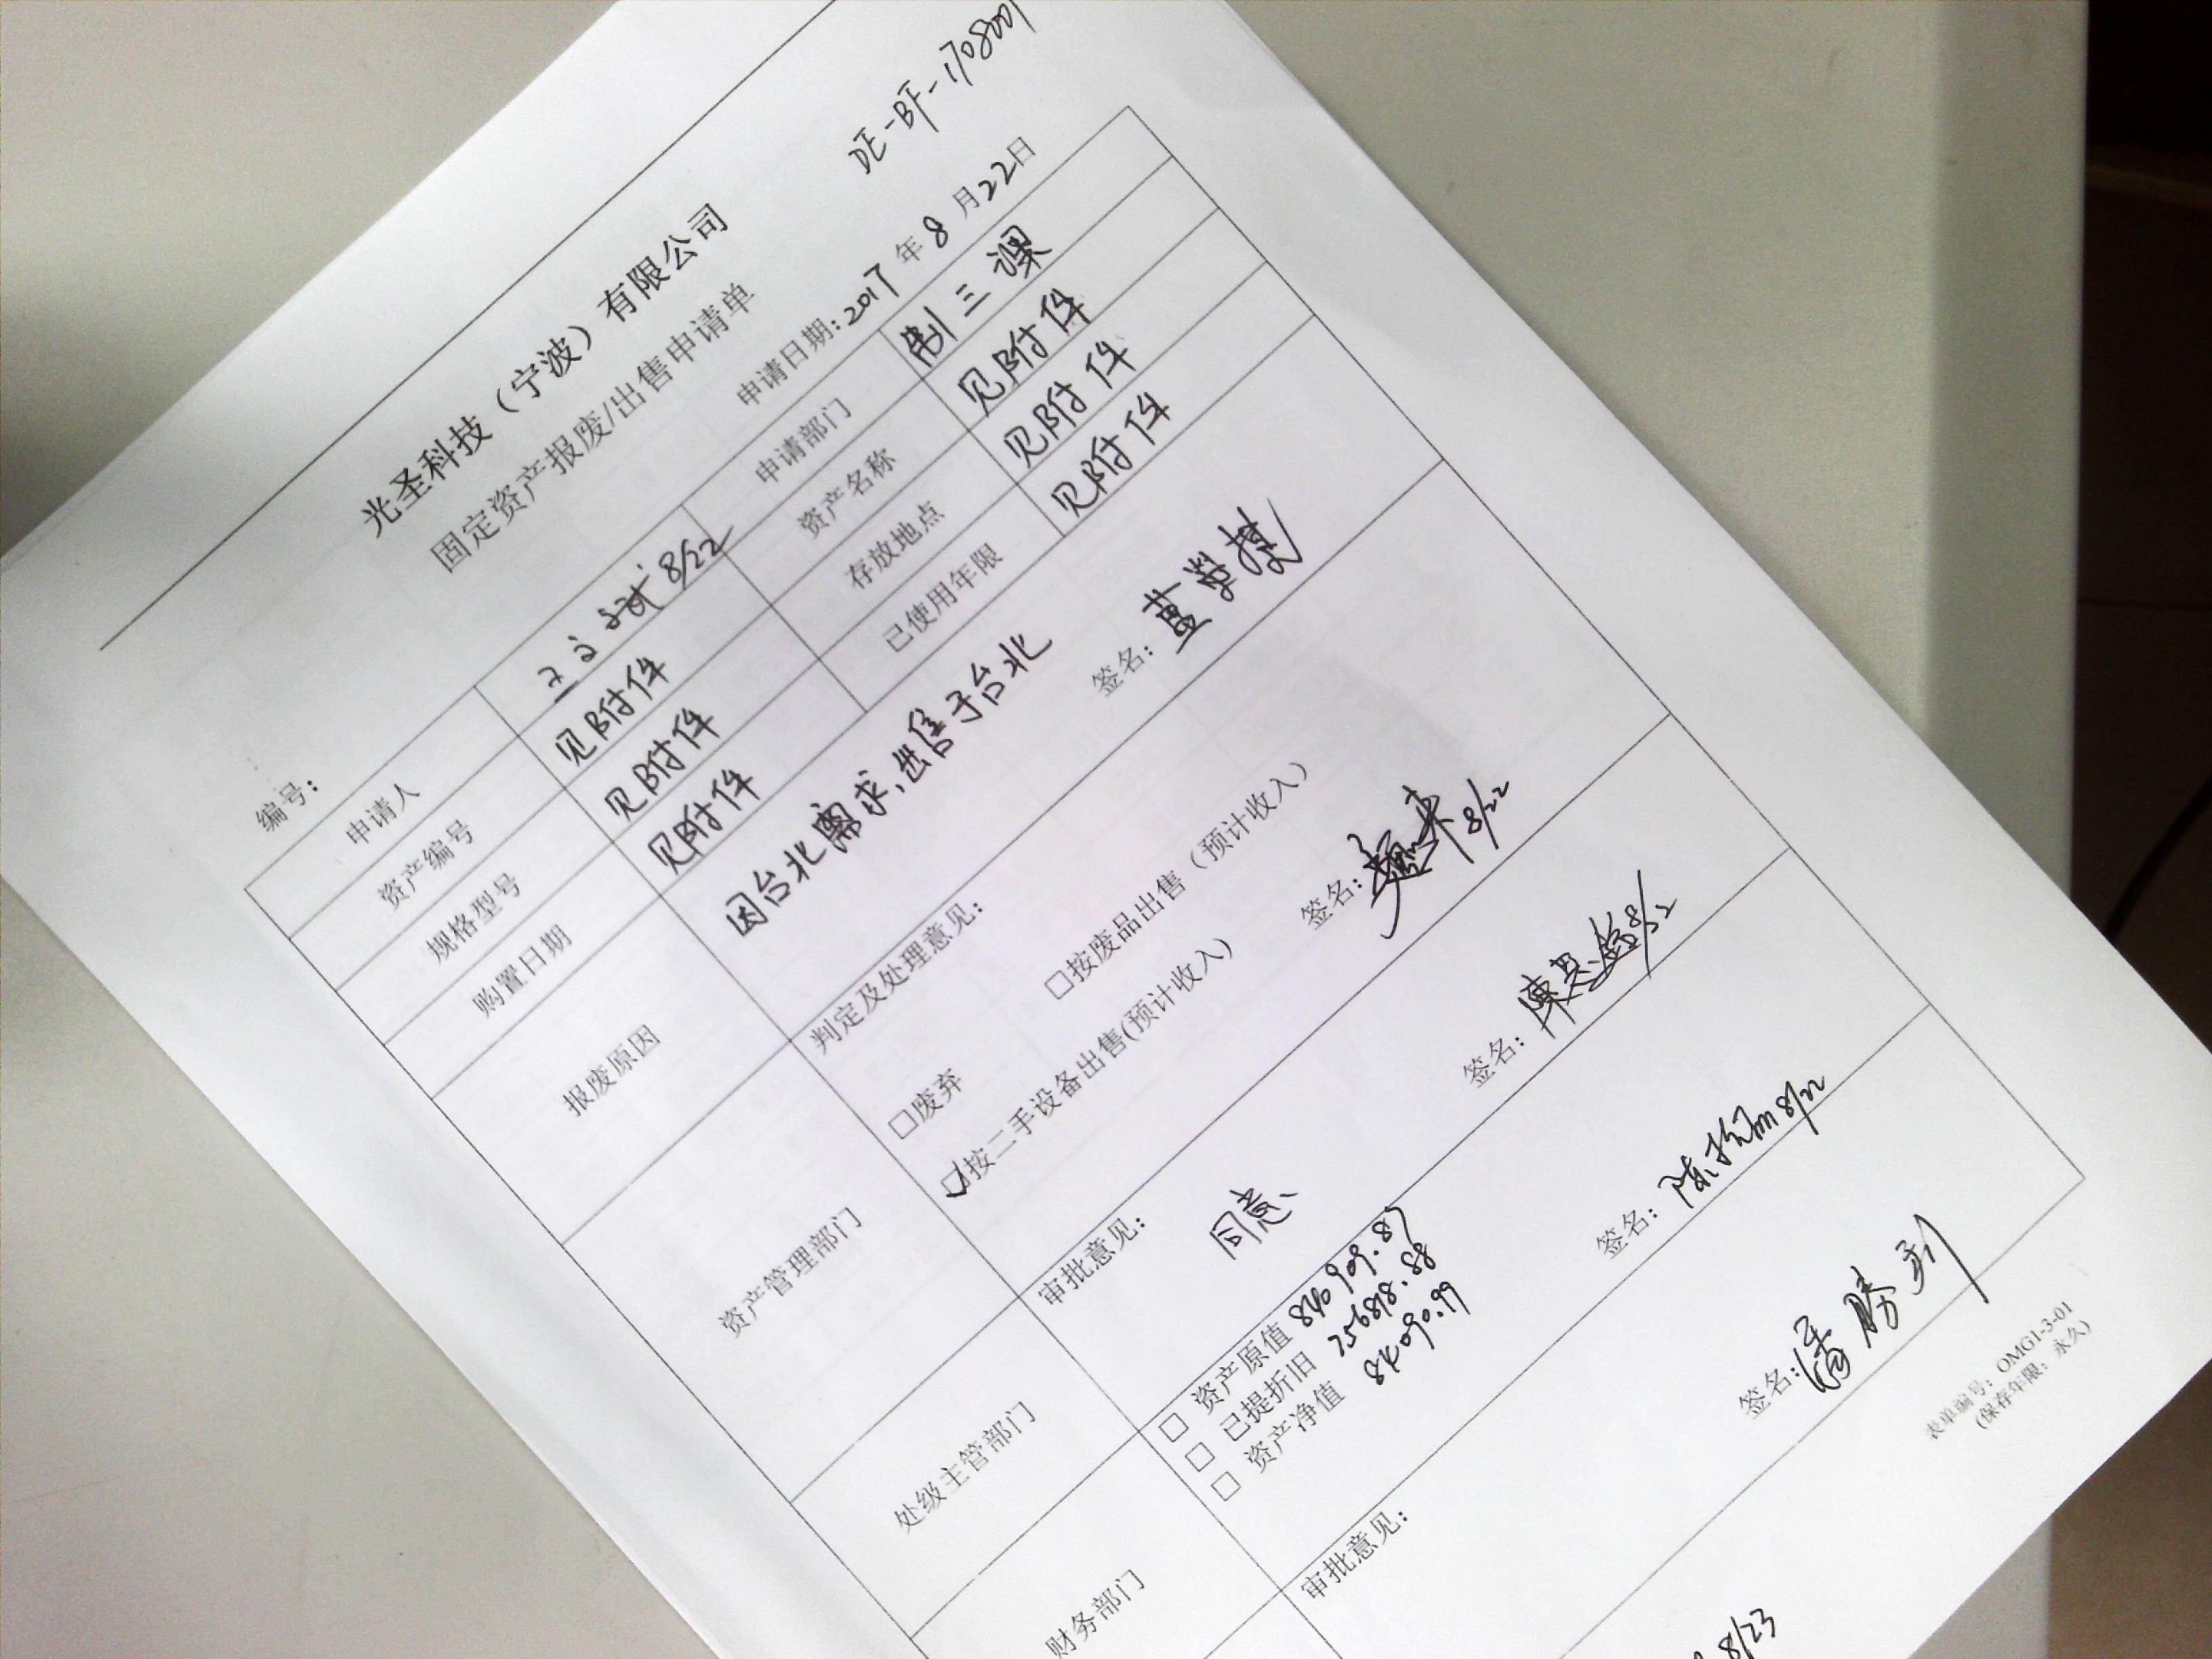 DE-BF-1708001
光圣科技（宁波）有限公司
固定资产报废/出售申请单
编号：
申请日期：2017年8月22日
申请人 8/22 申请部门 制三课
资产编号 见附件 资产名称 见附件
规格型号 见附件 存放地点 见附件
购置日期 见附件 已使用年限 见附件
报废原因 因台北需求,出售于台北
签名：
资产管理部门 判定及处理意见：
□废弃 □按废品出售（预计收入）
☑按二手设备出售(预计收入) 签名： 8/22
处级主管部门 审批意见： 同意 签名： 8/22
财务部门 □ 资产原值 840909.87
□ 已提折旧 756818.88
□ 资产净值 84090.99
签名： 8/22
审批意见：
签名： 潘勝利
8/23
表单编号： OMG1-3-01
(保存年限：永久)